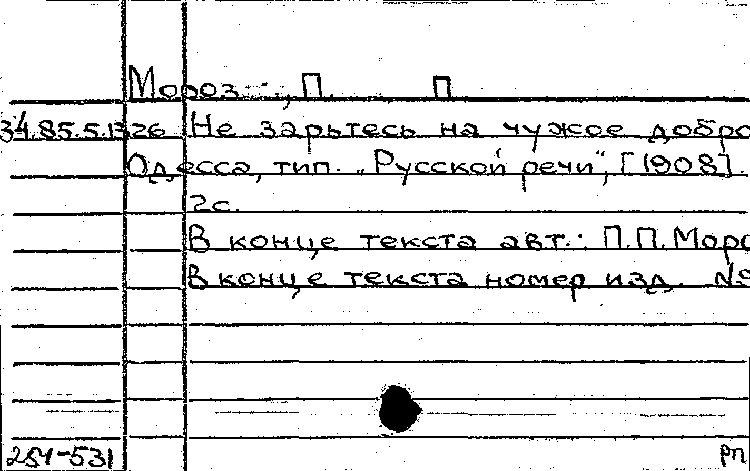 Мороз, П. П
34.85.5.1326 Не зарьтесь на чужое добро
Одесса, тип. „Русской речи", [1908].
2с.
В конце текста авт.: П.П.Моро
В конце текста номер изд. №
251-531
рп